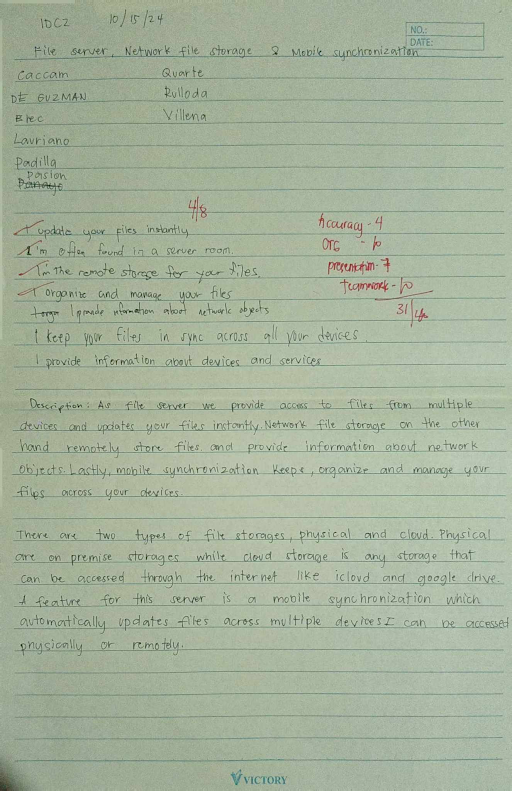 IDC2 10/15/24
NO.:
DATE:
File server, Network file storage & Mobile synchronization
Caccam Quarte
DE GUZMAN Rulloda
Erec Villena
Lauriano
Padilla
Pasion
4/8
I update your files instantly Accuracy - 4
I'm often found in a server room. Org - 10
I'm the remote storage for your files. presentation - 7
I organize and manage your files teamwork - 10
I provide information about network objects 31/40
I keep your files in sync across all your devices
I provide information about devices and services
Description: As file server we provide access to files from multiple
devices and updates your files instantly. Network file storage on the other
hand remotely store files and provide information about network
objects. Lastly, mobile synchronization keeps, organize and manage your
files across your devices.
There are two types of file storages, physical and cloud. Physical
are on premise storages while cloud storage is any storage that
can be accessed through the internet like icloud and google drive.
A feature for this server is a mobile synchronization which
automatically updates files across multiple devices I can be accessed
physically or remotely.
VICTORY